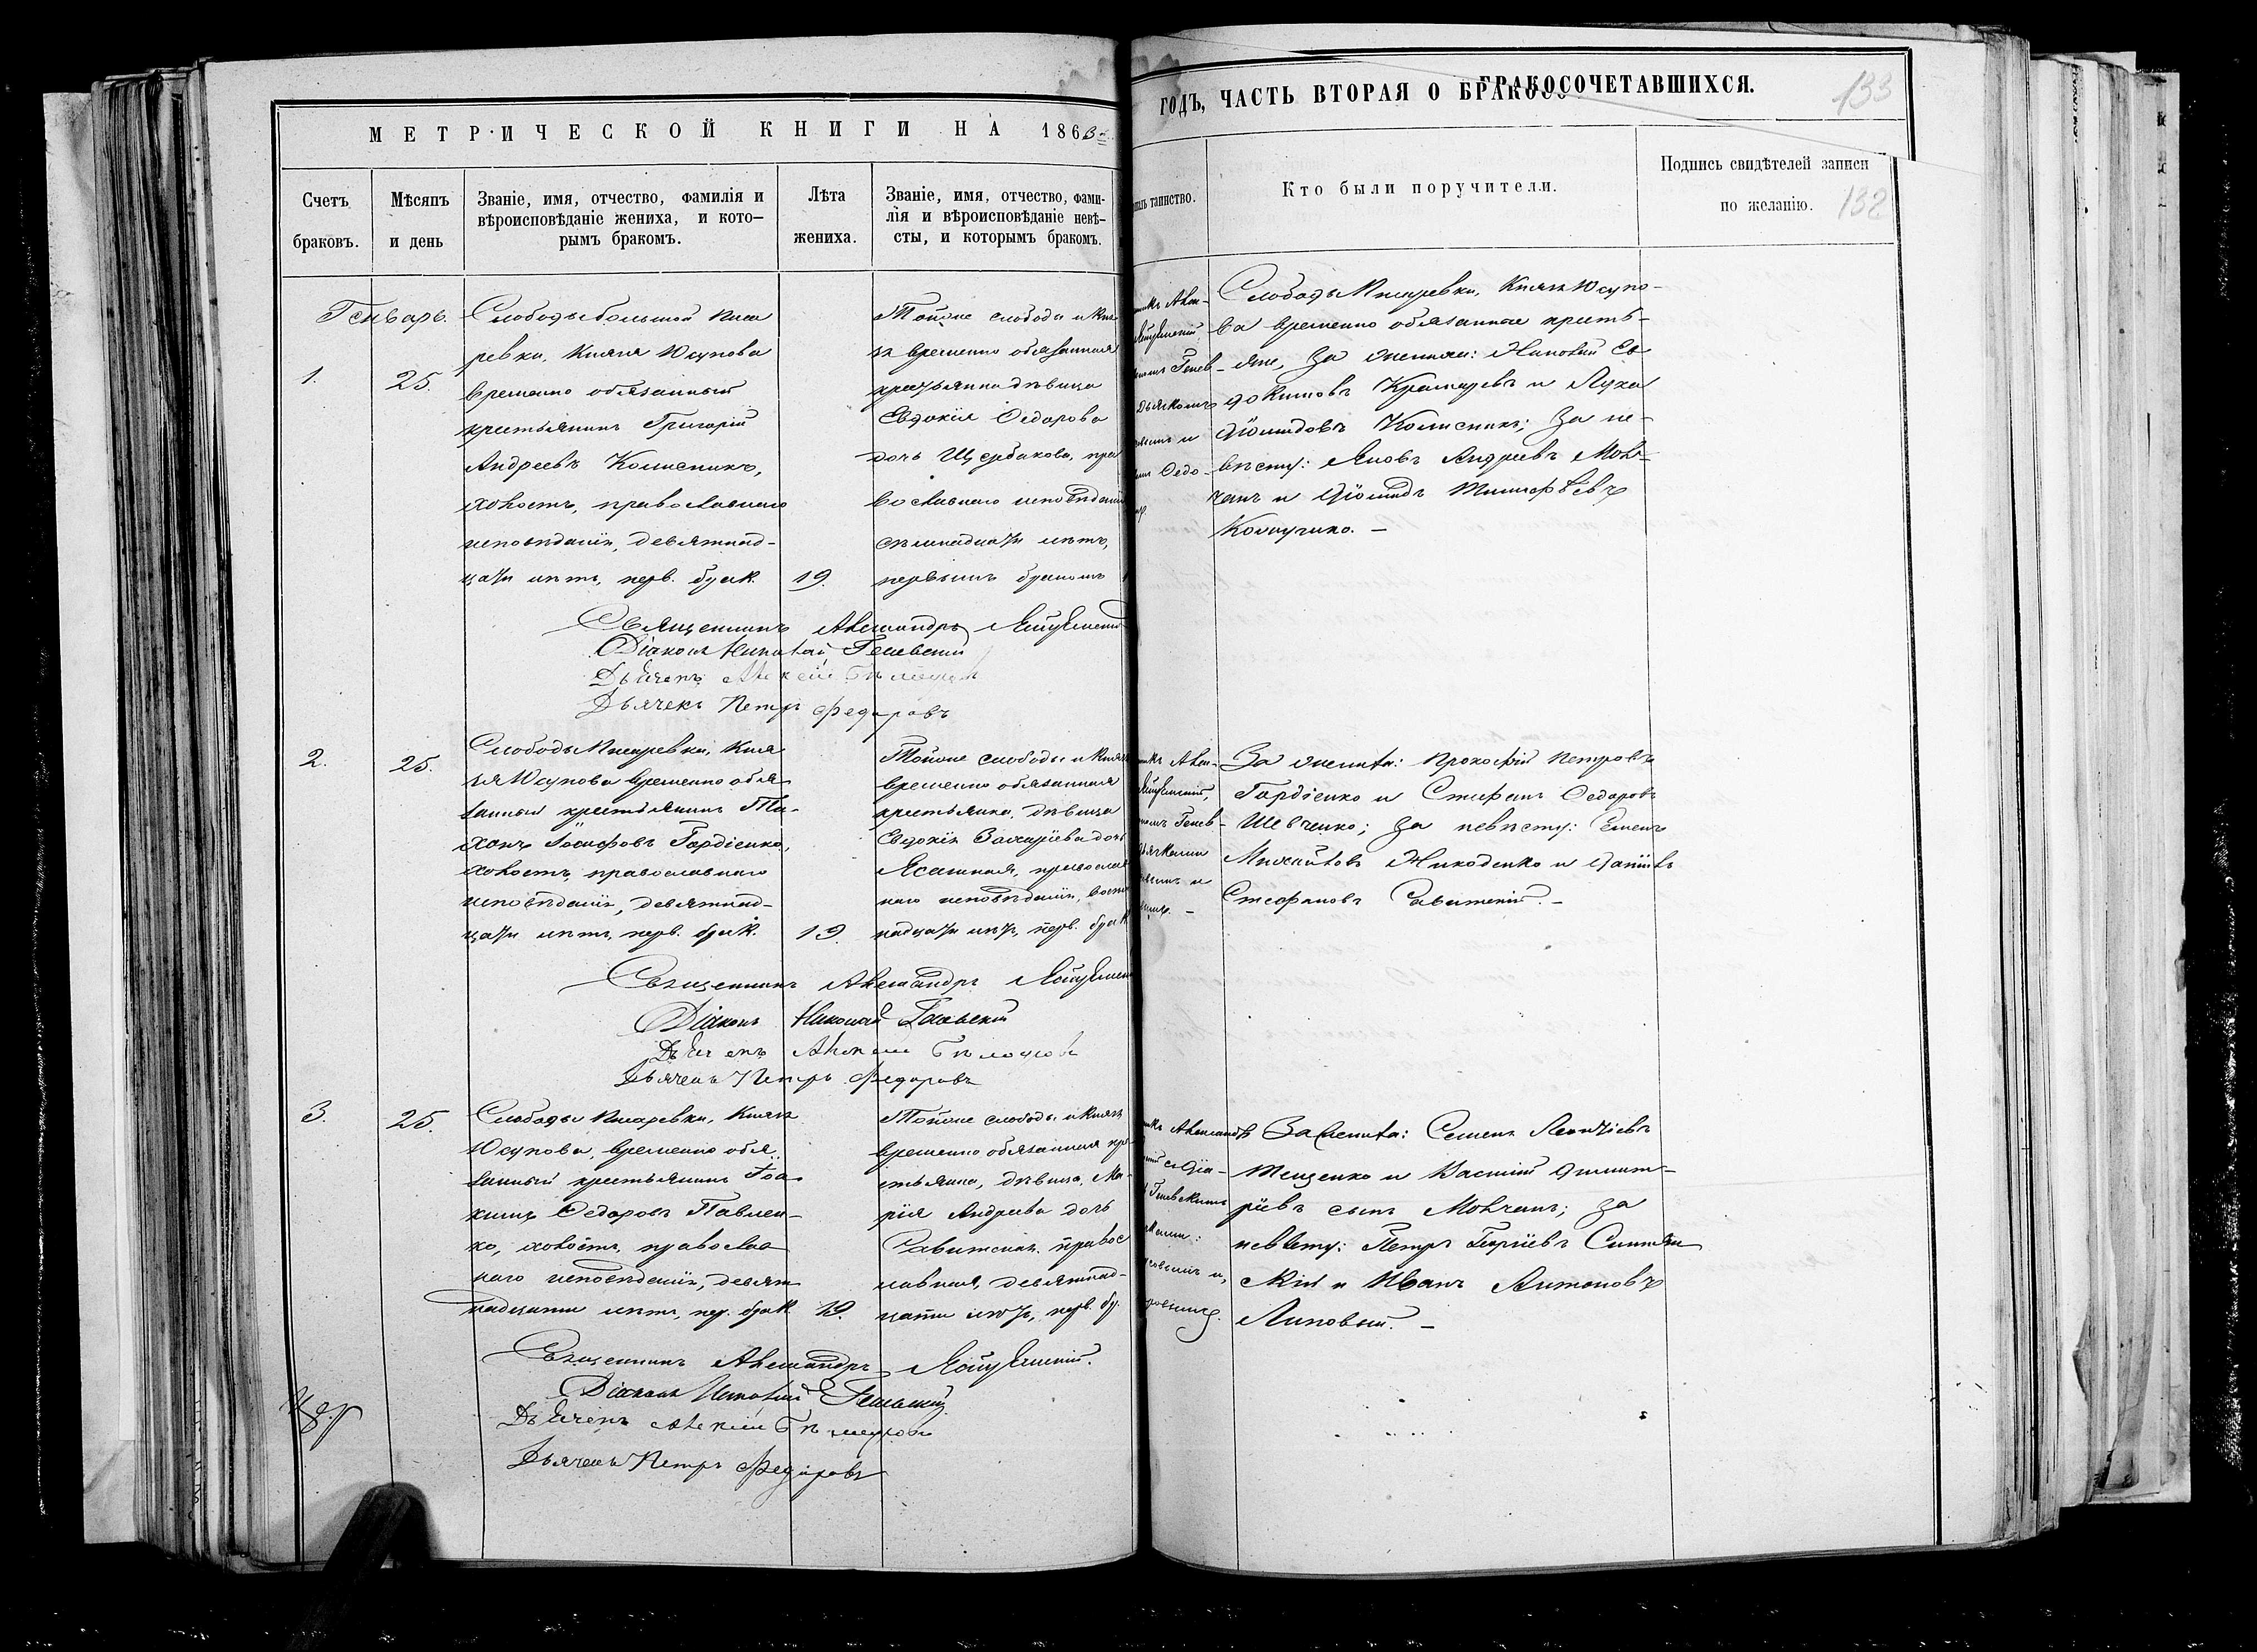 МЕТРИЧЕСКОЙ КНИГИ НА 1863
ГОДЪ, ЧАСТЬ ВТОРАЯ О БРАКОСОЧЕТАВШИХСЯ.
133
Счетъ браковъ.
Мѣсяцъ и день
Званіе, имя, отчество, фамилія и
вѣроисповѣданіе жениха, и кото-
рымъ бракомъ.
Лѣта
жениха.
Званіе, имя, отчество, фами-
лія и вѣроисповѣданіе невѣ-
сты, и которымъ бракомъ.
таинство.
Кто были поручители.
Подпись свидѣтелей записи
по желанію.
132
Генварь.
1.
25.
Слободы большой Писа
ревки, Князя Юсупова
временно обязанный
крестьянинъ Григорій
Андреевъ Колисникъ,
холостъ, православнаго
исповѣданія, девятнад-
цати лѣтъ, перв. брак.
19.
Тойже слободы и Кня
зя временно обязанная
крестьянка дѣвица
Евдокія Ѳедорова
дочь Щербакова, пра
вославнаго исповѣданія
семнадцати лѣтъ,
первымъ бракомъ
Слободы Писаревки, Князя Юсупо-
ва временно обязанные кресть-
яне, За жениха: Николай Ев-
докимовъ Крамаревъ и Лука
Діомидовъ Колисникъ; За не-
вѣсту: Яковъ Андреевъ Мов-
чанъ и Діомидъ Тимофѣевъ
Священникъ Александръ
Діаконъ Николай Геневскій
Дьячекъ Алексѣй
Дьячекъ Петръ Федоровъ
2.
25.
Слободы Писаревки, Кня
зя Юсупова временно обя
занный крестьянинъ Ти-
хонъ Іосифовъ Гордіенко,
холостъ, православнаго
исповѣданія, девятнад-
цати лѣтъ, перв. брак.
19.
Тойже слободы и Князя
временно обязанная
крестьянка, дѣвица
Евдокія Захаріева дочь
православ
наго исповѣданія, восем
надцати лѣтъ, перв. брак
За жениха: Прокофій Петровъ
Гордіенко и Стефанъ Ѳедоровъ
Шевченко; За невѣсту: Семенъ
Михайловъ и Даніилъ
Стефановъ Савитскій. —
Священникъ Александръ
Діаконъ Николай Геневскій
Дьячекъ Алексѣй
Дьячекъ Петръ Федоровъ
3.
25.
Слободы Писаревки, Князя
Юсупова, временно обя
занный крестьянинъ Іоа
кимъ Ѳедоровъ Павлен-
ко, холостъ, православ
наго исповѣданія, девят
надцати лѣтъ, пер. брак.
19.
Тойже слободы и Князя
временно обязанная кре-
стьянка, дѣвица, Ма-
рія Андреева дочь
Савитская, правос
лавная, девятнад-
цати лѣтъ, перв. бр.
За жениха: Семенъ Леонтіевъ
Тещенко и Василій Димит-
ріевъ сынъ Мовчанъ; за
невѣсту: Петръ Георгіевъ
и Иванъ Антоновъ
Липовый. —
Священникъ Александръ
Діаконъ Николай Геневскій
Дьячекъ Алексѣй
Дьячекъ Петръ Федоровъ